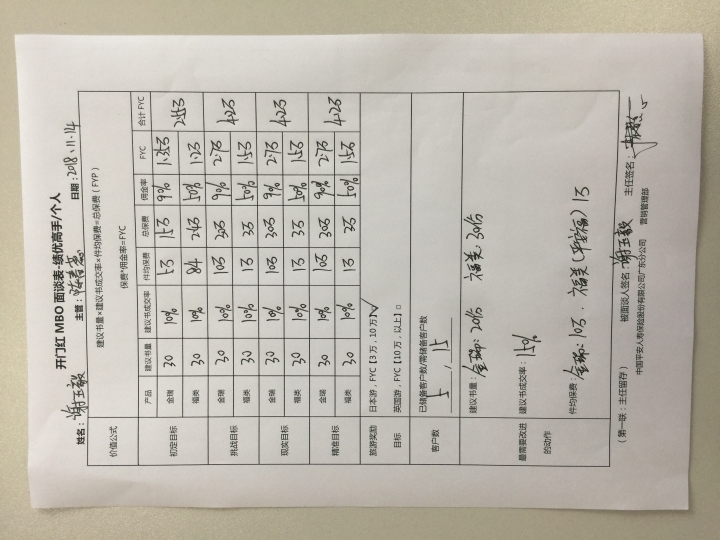 开门红 MBO 面谈表-绩优高手/个人
姓名：谢玉毅 主管： 日期：2018.11.14
价值公式 建议书量×建议书成交率×件均保费=总保费（FYP）
保费*佣金率=FYC
产品 建议书量 建议书成交率 件均保费 总保费 佣金率 FYC 合计 FYC
初定目标 金瑞 30 10% 5万 15万 9% 1.35万 2.55万
福类 30 10% 8千 2.4万 50% 1.2万
挑战目标 金瑞 30 10% 10万 30万 9% 2.7万 4.2万
福类 30 10% 1万 3万 50% 1.5万
现实目标 金瑞 30 10% 10万 30万 9% 2.7万 4.2万
福类 30 10% 1万 3万 50% 1.5万
精准目标 金瑞 30 10% 10万 30万 9% 2.7万 4.2万
福类 30 10% 1万 3万 50% 1.5万
旅游奖励 日本游，FYC【3万，10万】✓
目标 英国游，FYC【10万，以上】□
客户数 已储备客户数/需储备客户数
5 , 15
最需要改进的动作 建议书量：金瑞：20份 福类：30份
建议书成交率：15%
件均保费：金瑞：10万． 福类（平安福）1万
（第一联：主任留存） 被面谈人签名：谢玉毅 主任签名：
中国平安人寿保险股份有限公司广东分公司 营销管理部